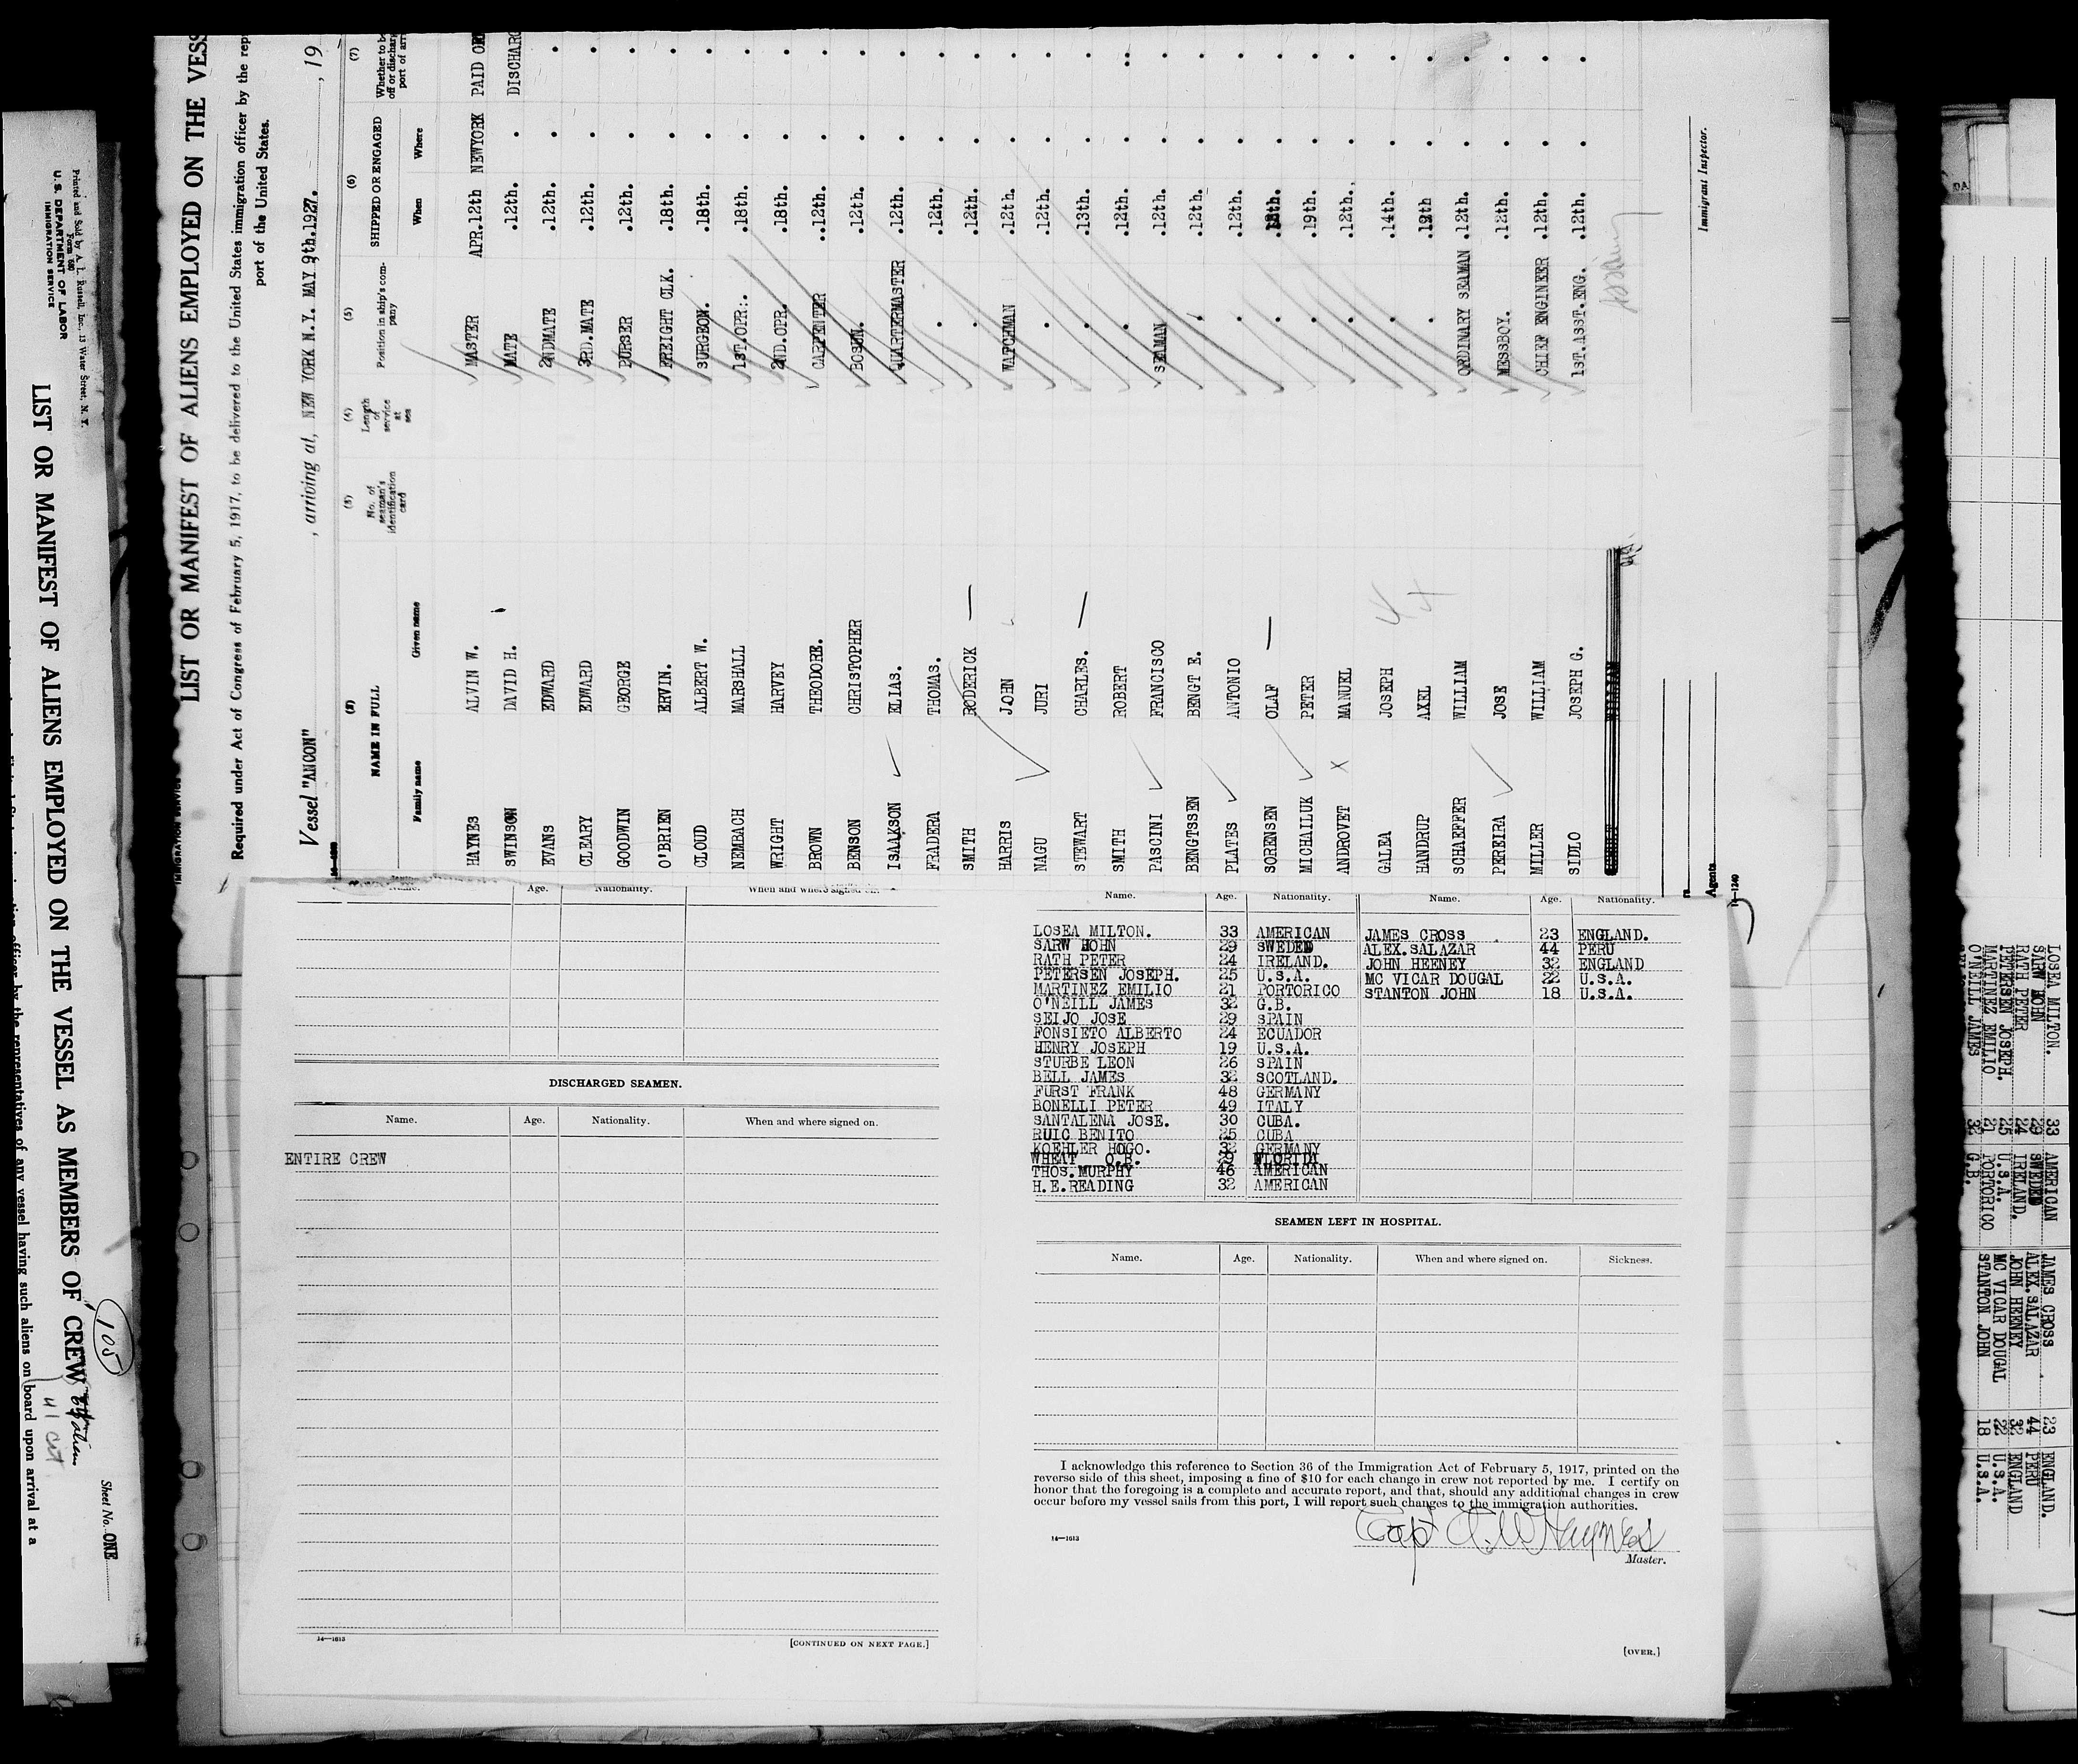 LIST OR MANIFEST OF ALIENS EMPLOYED ON THE VESS
Required under Act of Congress of February 5, 1917, to be delivered to the United States immigration officer by the rep
port of the United States.
Vessel "ANCON" , arriving at, NEW YORK N.Y. MAY 9th.1927. , 19
(2) (3) (4) (5) (6) (7)
NAME IN FULL No. of seaman's identification card Length of service at sea Position in ship's company SHIPPED OR ENGAGED Whether to be
off or discharg
port of arr
Family name Given name When Where
HAYNES ALVIN W. MASTER APR.12th NEWYORK PAID OFF
SWINSON DAVID H. MATE .12th. . DISCHARG
EVANS EDWARD 2NDMATE .12th. . .
CLEARY EDWARD 3RD.MATE .12th. . .
GOODWIN GEORGE PURSER .12th. . .
O'BRIEN ERVIN. FREIGHT CLK. .18th. . .
CLOUD ALBERT W. SURGEON. .18th. . .
NEMBACH MARSHALL 1ST.OPR:. .18th. . .
WRIGHT HARVEY 2ND.OPR. .18th. . .
BROWN THEODORE. CARPENTER ..12th. . .
BENSON CHRISTOPHER BOSUN. .12th. . .
ISAAKSON ELIAS. QUARTERMASTER .12th. . .
FRADERA THOMAS. . .12th. . .
SMITH RODERICK . .12th. . .
HARRIS JOHN WATCHMAN .12th. . .
NAGU JURI . .12th. . .
STEWART CHARLES. . .13th. . .
SMITH ROBERT . .12th. . :
PASCINI FRANCISCO SEAMAN .12th. . .
BENGTSSEN BENGT E. . .12th. . .
PLATES ANTONIO . .12th. . .
SORENSEN OLAF . . .
MICHAILUK PETER . .19th. . .
ANDROVET MANUEL . .12th. . .
GALEA JOSEPH . .14th. . .
HANDRUP AXEL . .12th . .
SCHAEFFER WILLIAM ORDINARY SEAMAN .12th. . .
PEREIRA JOSE MESSBOY. .12th. . .
MILLER WILLIAM CHIEF ENGINEER .12th. . .
SIDLO JOSEPH G. 1ST.ASST.ENG. .12th. . .
WILLIAM
Immigrant Inspector.
Agents
14—1240
Age. Nationality. When and where signed on.
DISCHARGED SEAMEN.
Name. Age. Nationality. When and where signed on.
ENTIRE CREW
14—1613
[CONTINUED ON NEXT PAGE.]
Name. Age. Nationality. Name. Age. Nationality.
LOSEA MILTON. 33 AMERICAN JAMES CROSS 23 ENGLAND.
SARW HOHN 29 SWEDEN ALEX.SALAZAR 44 PERU
RATH PETER 24 IRELAND. JOHN HEENEY 32 ENGLAND
PETERSEN JOSEPH. 25 U.S.A. MC VICAR DOUGAL 22 U.S.A.
MARTINEZ EMILIO 21 PORTORICO STANTON JOHN 18 U.S.A.
O'NEILL JAMES 32 G.B.
SEIJO JOSE 29 SPAIN
FONSIETO ALBERTO 24 ECUADOR
HENRY JOSEPH 19 U.S.A.
STURBE LEON 26 SPAIN
BELL JAMES 32 SCOTLAND.
FURST FRANK 48 GERMANY
BONELLI PETER 49 ITALY
SANTALENA JOSE. 30 CUBA.
RUIC BENITO 25 CUBA
KOEHLER HOGO. 32 GERMANY
WHEAT O.R. 29 FLORIDA
THOS.MURPHY 46 AMERICAN
H.E.READING 32 AMERICAN
SEAMEN LEFT IN HOSPITAL.
Name. Age. Nationality. When and where signed on. Sickness.
I acknowledge this reference to Section 36 of the Immigration Act of February 5, 1917, printed on the
reverse side of this sheet, imposing a fine of $10 for each change in crew not reported by me. I certify on
honor that the foregoing is a complete and accurate report, and that, should any additional changes in crew
occur before my vessel sails from this port, I will report such changes to the immigration authorities.
Capt A.W. Haynes
Master.
14—1613
[OVER.]
Printed and Sold by A. L. Russell, Inc., 13 Water Street, N. Y.
Form 680
U. S. DEPARTMENT OF LABOR
IMMIGRATION SERVICE
LIST OR MANIFEST OF ALIENS EMPLOYED ON THE VESSEL AS MEMBERS OF CREW
105
Sheet No. ONE
by the representatives of any vessel having such aliens on board upon arrival at a
LOSEA MILTON. 33 AMERICAN JAMES CROSS 23 ENGLAND.
SARW HOHN 29 SWEDEN ALEX.SALAZAR 44 PERU
RATH PETER 24 IRELAND. JOHN HEENEY 32 ENGLAND
PETERSEN JOSEPH. 25 U.S.A. MC VICAR DOUGAL 22 U.S.A.
MARTINEZ EMILIO 21 PORTORICO STANTON JOHN 18 U.S.A.
O'NEILL JAMES 32 G.B.